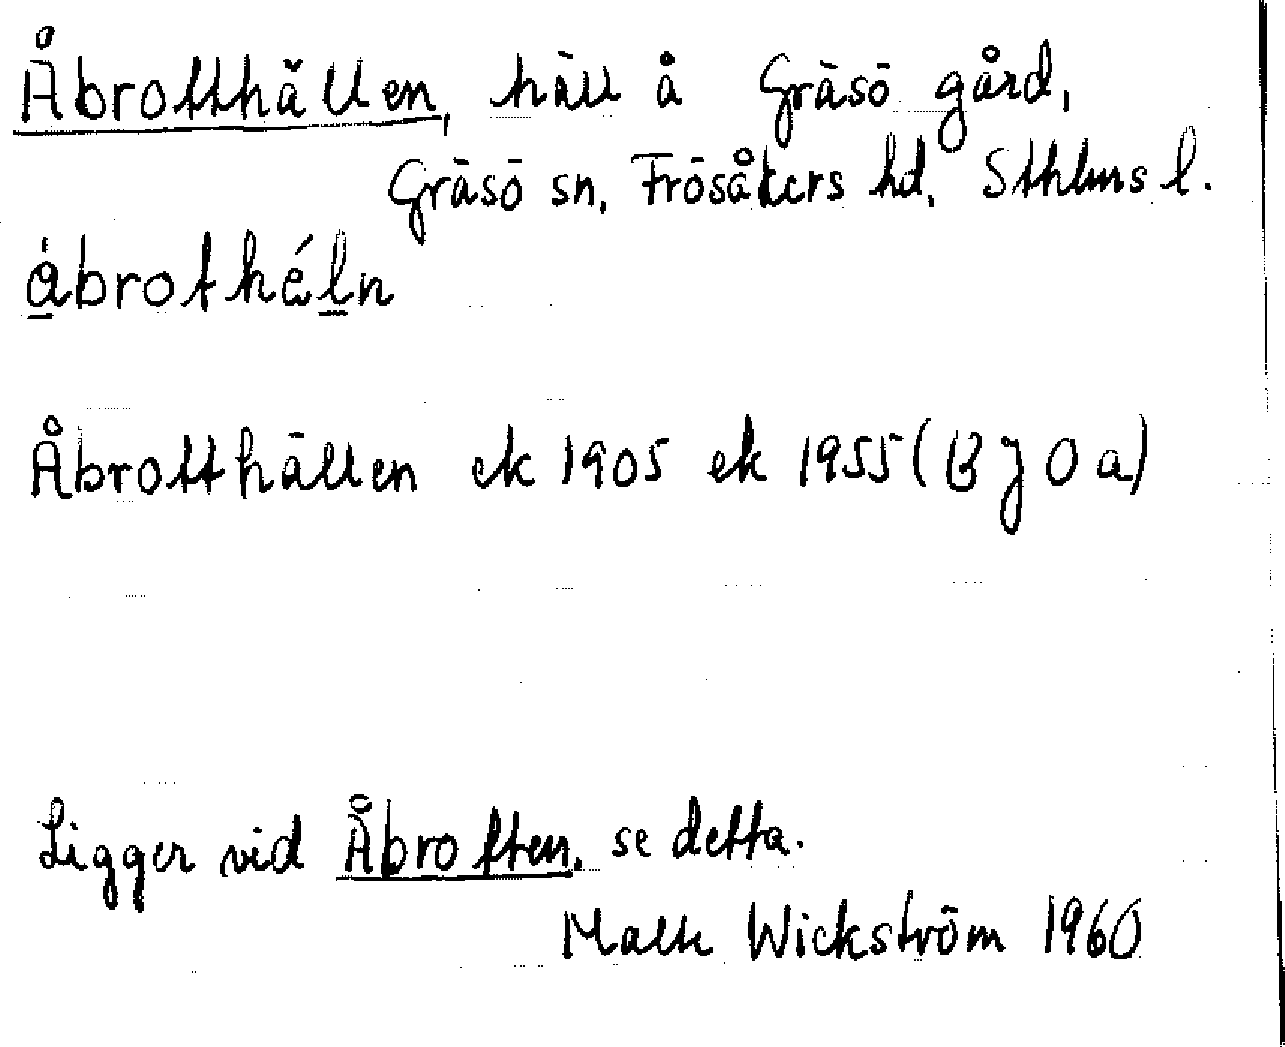 Åbrotthällen, häll å Gräsö gård,
Gräsö sn, Frösåkers hd, Sthlms l.
åbrothéln
Åbrotthällen ek 1905 ek 1955 (BJOa)
Ligger vid Åbrotten, se detta.
Wickström 1960